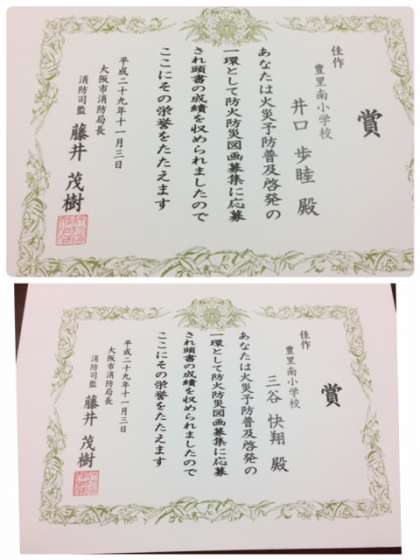 賞
佳作
豊里南小学校
井口 歩睦 殿
あなたは火災予防普及啓発の
一環として防火防災図画募集に応募
され頭書の成績を収められましたので
ここにその栄誉をたたえます
平成二十九年十一月三日
大阪市消防局長
消防司監 藤井 茂樹
賞
佳作
豊里南小学校
三谷 快翔 殿
あなたは火災予防普及啓発の
一環として防火防災図画募集に応募
され頭書の成績を収められましたので
ここにその栄誉をたたえます
平成二十九年十一月三日
大阪市消防局長
消防司監 藤井 茂樹